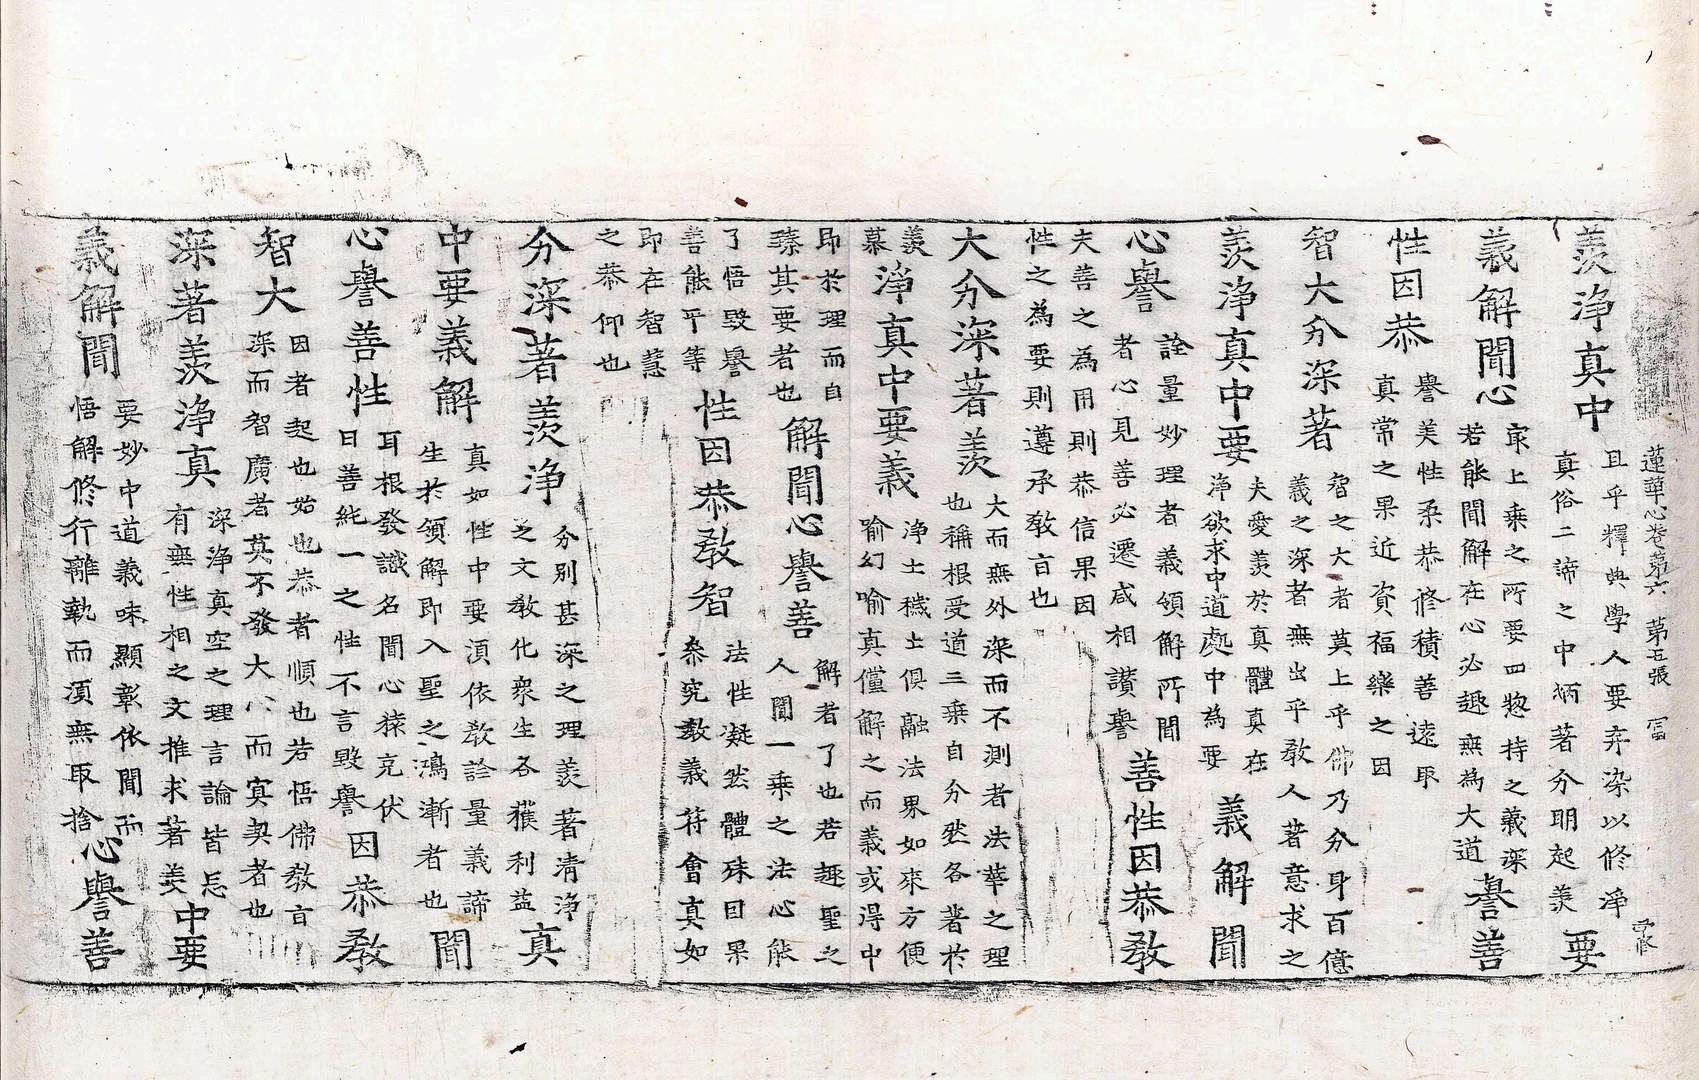 蓮華心卷第六 第五張 富
羨淨真中
且乎釋典學人要弃染以修淨
真俗二諦之中炳著分明起羨
要
義解聞心
㝡上乘之所要四惣持之義深
若能聞解在心必趣無為大道
譽善
性因恭
譽美性柔恭修積善遠取
真常之果近資福樂之因
智大分深著
智之大者莫上乎佛乃分身百億
義之深者無出乎教人著意求之
羨淨真中要
夫愛羨於真體真在
淨欲求中道處中為要
義解聞
心譽
詮量妙理者義領解所聞
者心見善必遷咸相讃譽
善性因恭教
夫善之為用則恭信果因
性之為要則遵承教旨也
大分深著羨
大而無外深而不測者法華之理
也稱根受道三乘自分然各著於
羨
慕
淨真中要義
淨土穢土俱融法界如來方便
喻幻喻真僅解之而義或得中
即於理而自
臻其要者也
解聞心譽善
解者了也若趣聖之
人聞一乘之法心能
了悟毀譽
善能平等
性因恭教智
法性凝然體殊因果
叅究教義符會真如
即在智慧
之恭仰也
分深著羨淨
分別甚深之理羨著清淨
之文教化衆生各獲利益
真
中要義解
真如性中要湏依教詮量義諦
生於領解即入聖之鴻漸者也
聞
心譽善性
耳根發識名聞心猿克伏
曰善純一之性不言毀譽
因恭教
智大
因者起也始也恭者順也若悟佛教旨
深而智廣者莫不發大心而㝠契者也
深著羨淨真
深淨真空之理言論皆忘
有無性相之文推求著羨
中要
義解聞
要妙中道義味顯彰依聞而
悟解修行離執而湏無取捨
心譽善